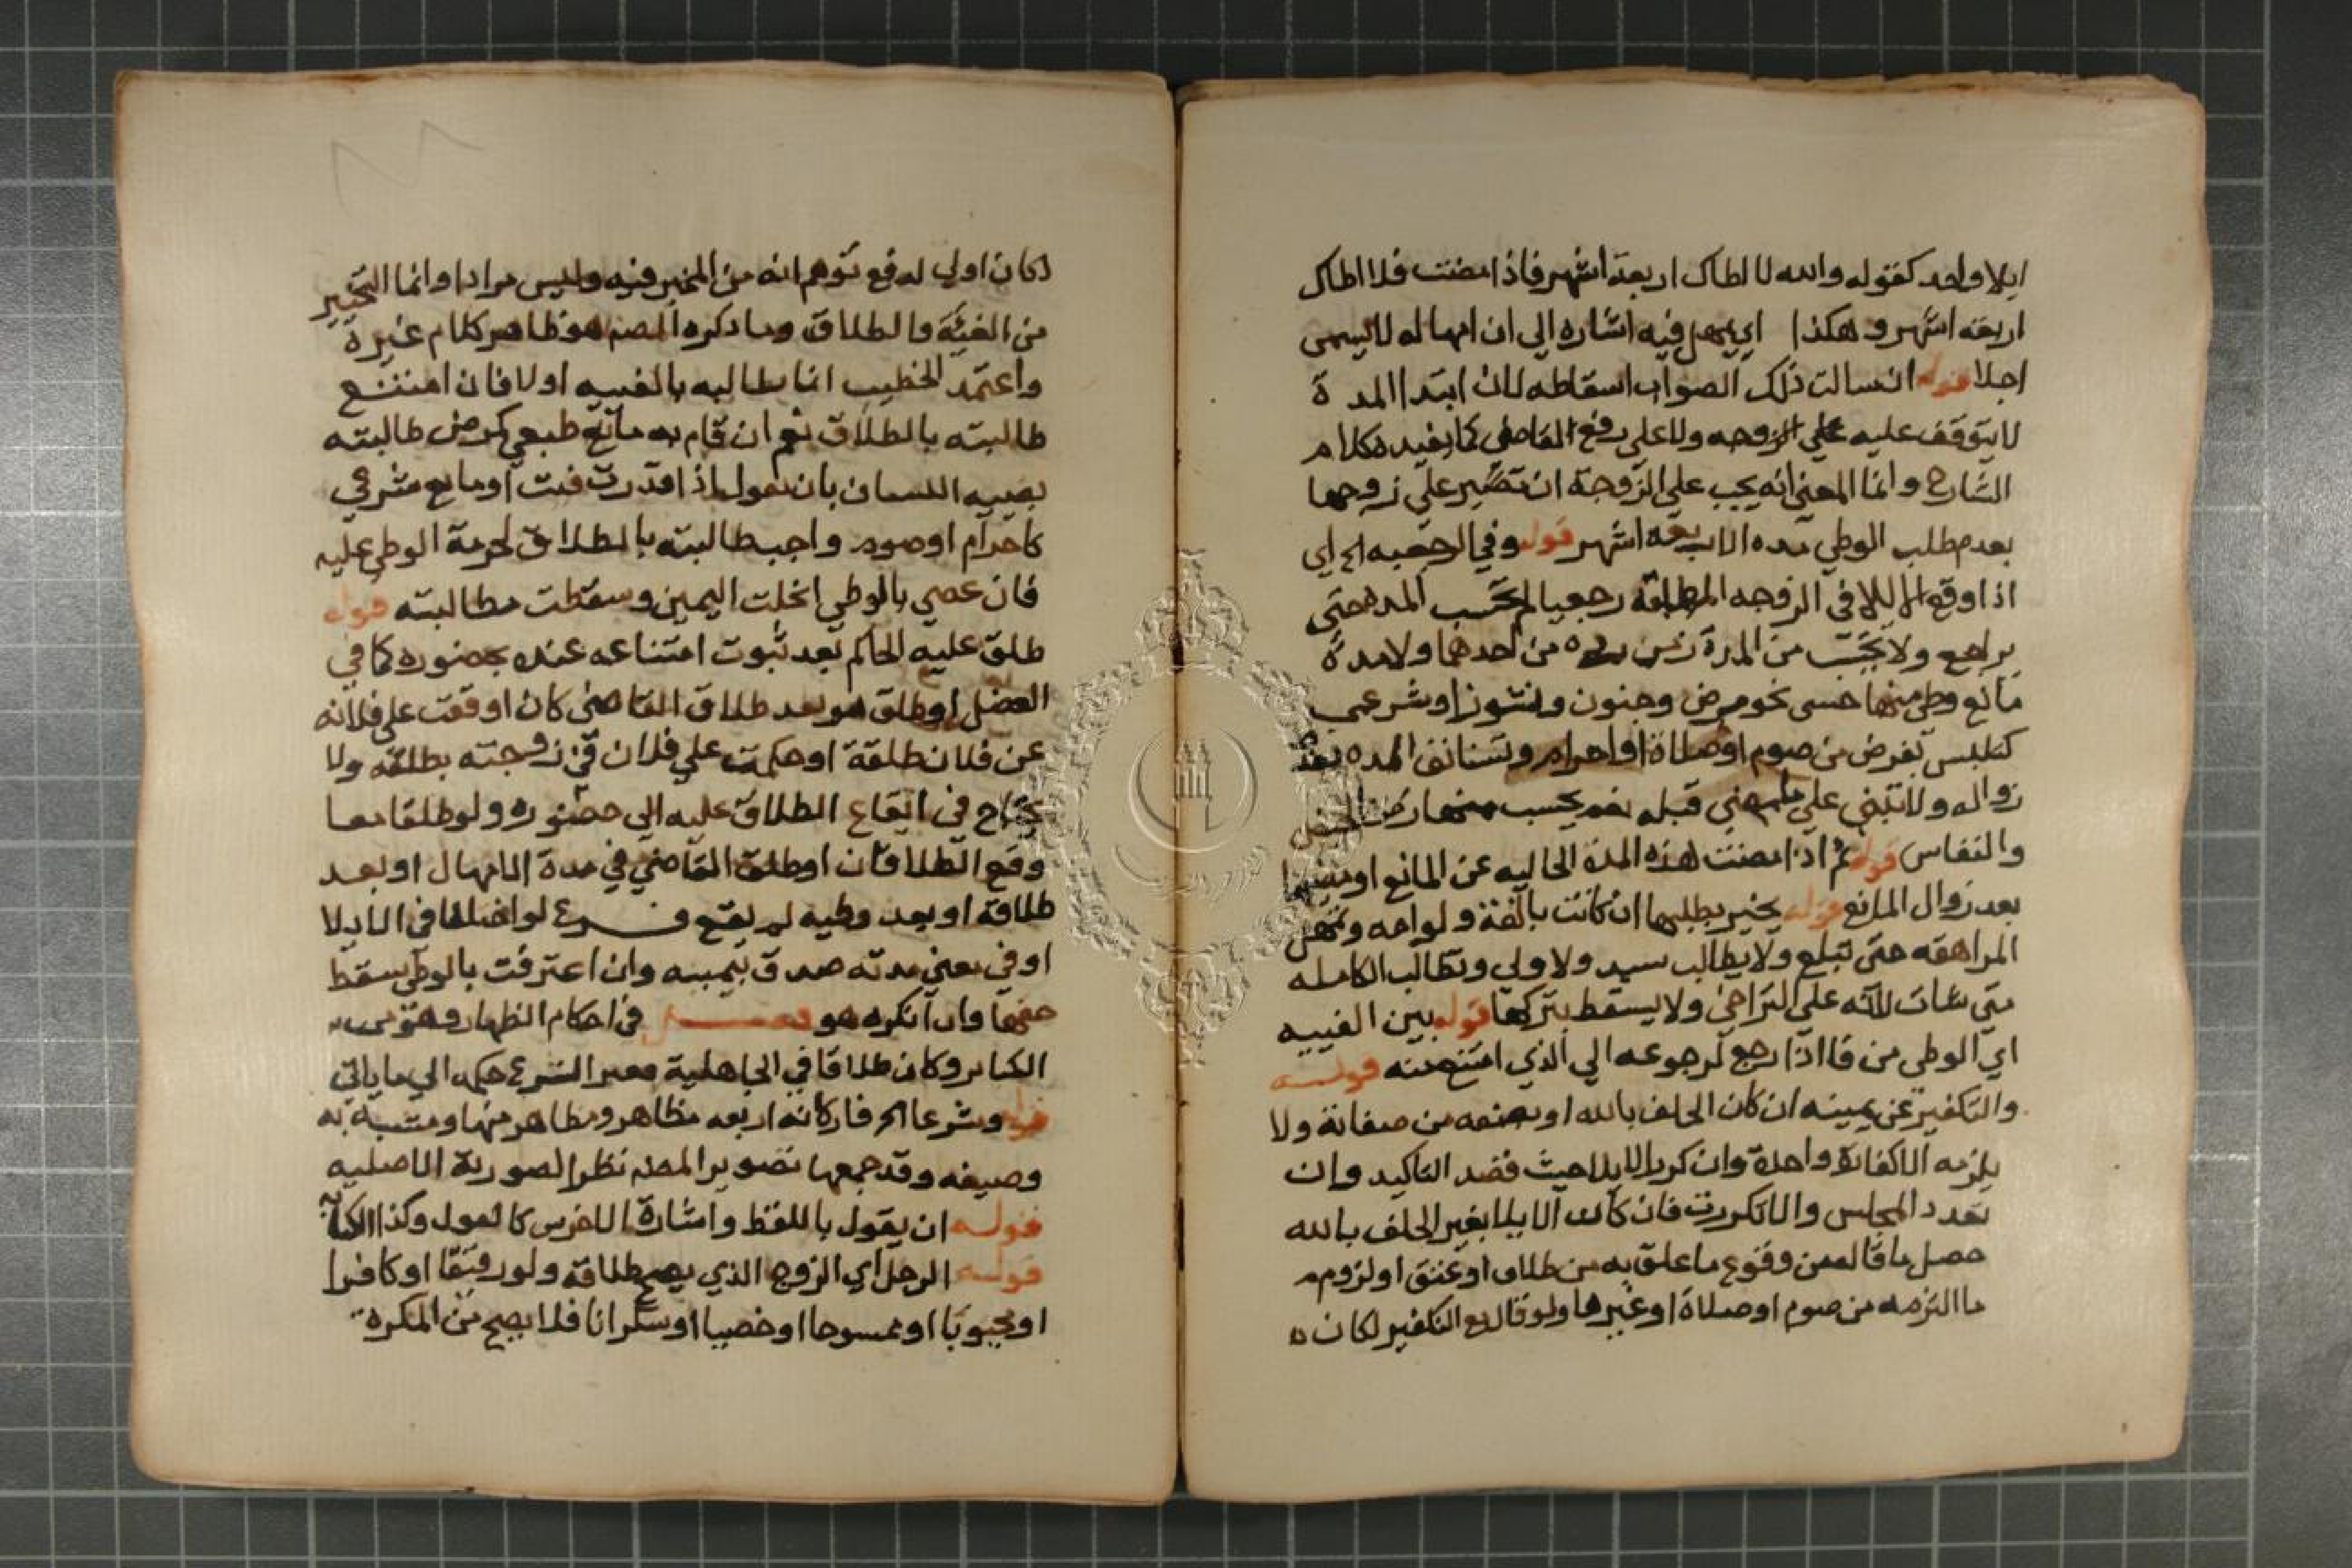 ايلا واحد كقوله والله لا اطاك اربعة اشهر فاذا مضت فلا اطاك
اربعة اشهر وهكذا اي يمهل فيه اشاره الي ان امهاله لا يسمى
اجلا قوله ان سالت ذلك الصواب اسقاطه لان ابتدا المدة
لا يتوقف عليه علي الزوجه ولا علي رفع القاضي كما يفيده كلام
الشارح وانما المعنى انه يجب علي الزوجة ان تصبر علي زوجها
بعدم طلب الوطي مده الاربعه اشهر قوله وفي الرجعيه الخ اي
اذا وقع الايلا في الزوجه المطلقة رجعيا لم تحتسب المده حتى
يراجع ولا يحتسب من المدة زمن رده من احدهما ولا مدة
مانع وطي منها حسى نحو مرض وجنون ونشوز او شرعي
كتلبس بفرض من صوم او صلاة او احرام وتستانف المده بعد
زواله ولا تبنى علي ما مضي قبله نعم يحسب منها زمن الحيض
والنفاس قوله ثم اذا مضت هذه المدة الخاليه عن المانع او
بعد زوال المانع قوله يخير بطلبها ان كانت بالغة ولو امه وتمهل
المراهقه حتى تبلغ ولا يطالب سيد ولا ولي وتطالب الكامله
متى شات لانه علي التراخي ولا يسقط بتركها قوله بين الفييه
اي الوطي من فا اذا رجع لرجوعه الي الذي امتنع منه قوله
والتكفير عن يمينه ان كان الحلف بالله او بصفه من صفاته ولا
يلزمه الا كفارة واحدة وان كرر الايلا حيث قصد التاكيد وان
تعدد المجلس والا تكررت فان كان الايلا بغير الحلف بالله
حصل ما قاله من وقوع ما علق به من طلاق او عتق او لزوم
ما التزمه من صوم او صلاة او غيرها ولو قال مع التكفير لكان
لكان اولي لدفع توهم انه من المخير فيه وليس مرادا وانما التخيير
من الفيئة والطلاق وما ذكره المصم هو ظاهر كلام غيره
واعتمد الخطيب انها تطالبه بالفييه اولا فان امتنع
طالبته بالطلاق نعم ان قام به مانع طبعي كمرض طالبته
بفييه اللسان بان يقول اذا قدرت فئت او مانع شرعي
كاحرام او صوم واجب طالبته بالطلاق لحرمة الوطي عليه
فان عصي بالوطي انحلت اليمين وسقطت مطالبته قوله
طلق عليه الحاكم بعد ثبوت امتناعه عنده بحضوره كما في
العضل او طلق هو بعد طلاق القاضي كان اوقعت علي فلانه
عن فلان طلقة او حكمت علي فلان في زوجته بطلقه ولا
يحتاج في ايقاع الطلاق عليه الي حضوره ولو طلقا معا
وقع الطلاقان او طلق القاضي في مدة الامهال او بعد
طلاقه او بعد وطيه لم يقع فرع لو اختلفا في الايلا
او في معني مدته صدق بيمينه وان اعترفت بالوطي سقط
حقها وان انكره هو فصل في احكام الظهار وهو من
الكباير وكان طلاقا في الجاهلية فغير الشرع حكمه الي ما ياتي
قوله وشرعا الخ فاركانه اربعه مظاهر ومظاهر منها ومشبه به
وصيغه وقد جمعها تصوير المصم نظرا لصورته الاصليه
قوله ان يقول باللفظ واشارة الاخرس كالقول وكذا الكتابة
قوله الرجل اي الزوج الذي يصح طلاقه ولو رقيقا او كافرا
او مجبوبا او ممسوحا او خصيا او سكرانا فلا يصح من المكره